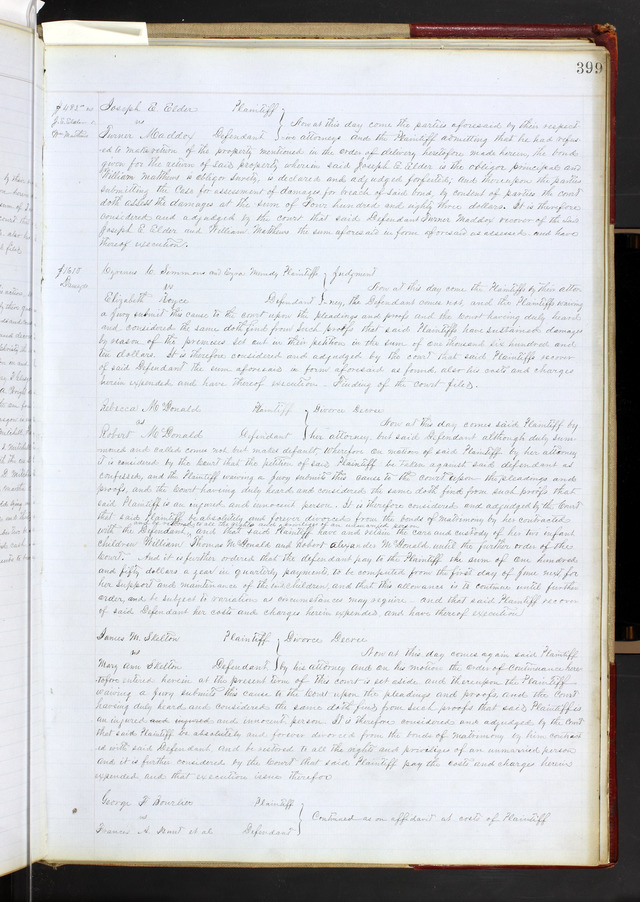 399
Joseph E Elder Plaintiff
vs Now at this day come the parties aforesaid by their respect
Turner Maddox Defendant ive attorneys and the Plaintiff admitting that he had refus
ed to make return of the property mentioned in the order of delivery heretofore made herein, the bond
given for the return of said property wherein said Joseph E Elder is the obligor principal and
William Matthews is obligor Surety, is declared and adjudged forfeited, and thereupon the parties
submitting the Case for assessment of damages for breach of said bond, by consent of parties the court
doth assess the damages at the sum of Four hundred and eighty three dollars. It is therefore
considered and adjudged by the court that said Defendant Turner Maddox recover of the said
Joseph E Elder and William Matthews the sum aforesaid in form aforesaid as assessed and have
thereof execution.
Cyrenus C. Simmons and Ezra Mundy Plaintiffs Judgment
vs Now at this day come the Plaintiffs by their attor
Elizabeth Royce Defendant ney, the Defendant comes not, and the Plaintiffs waiving
a jury submit this cause to the Court upon the pleadings and proofs and the Court having duly heard
and considered the same doth find from such proofs that said Plaintiffs have sustained damages
by reason of the premises set out in their petition in the sum of one thousand six hundred and
ten dollars. It is therefore considered and adjudged by the court that said Plaintiffs recover
of said Defendant the sum aforesaid in form aforesaid as found also his costs and charges
herein expended and have thereof execution. Finding of the court filed.
Rebecca McDonald Plaintiff Divorce Decree
vs Now at this day comes said Plaintiff by
Robert McDonald Defendant her attorney but said Defendant although duly sum
moned and called comes not but makes default. Wherefore on motion of said Plaintiff by her attorney
it is considered by the Court that the petition of said Plaintiff be taken against said defendant as
confessed, and the Plaintiff waiving a jury submits this cause to the Court upon the pleadings and
proofs, and the Court having duly heard and considered the same doth find from such proofs that
said Plaintiff is an injured and innocent person. It is therefore considered and adjudged by the Court
that said Plaintiff be absolutely and forever divorced from the bonds of matrimony by her contracted
and be restored to all the rights and privileges of an unmarried person
with the Defendant, and that said Plaintiff have and retain the care and custody of her two infant
children William Thomas McDonald and Robert Alexander McDonald until the further order of the
Court. And it is further ordered that the defendant pay to the Plaintiff the sum of One hundred
and fifty dollars a year in quarterly payments, to be computed from the first day of June next for
her support and maintenance of the said children, and that this allowance is to continue until further
order, and be subject to variation as circumstances may require and that said Plaintiff recover
of said Defendant her costs and charges herein expended, and have thereof execution
James M. Skelton Plaintiff Divorce Decree
vs Now at this day comes again said Plaintiff
Mary Ann Skelton Defendant by his attorney and on his motion the order of Continuance here
tofore entered herein at the present term of this court is set aside and thereupon the Plaintiff
waiving a Jury submits this cause to the Court upon the pleadings and proofs and the Court
having duly heard and considered the same doth find from such proofs that said Plaintiff is
an injured and innocent person. It is therefore considered and adjudged by the Court
that said Plaintiff be absolutely and forever divorced from the bonds of matrimony by him contract
ed with said Defendant and be restored to all the rights and privileges of an unmarried person
and it is further considered by the Court that said Plaintiff pay the costs and charges herein
expended and that execution issue therefor
George F Bourlier Plaintiff
vs Continued as on affidavit at costs of Plaintiff
Francis A. Hunt et al Defendant